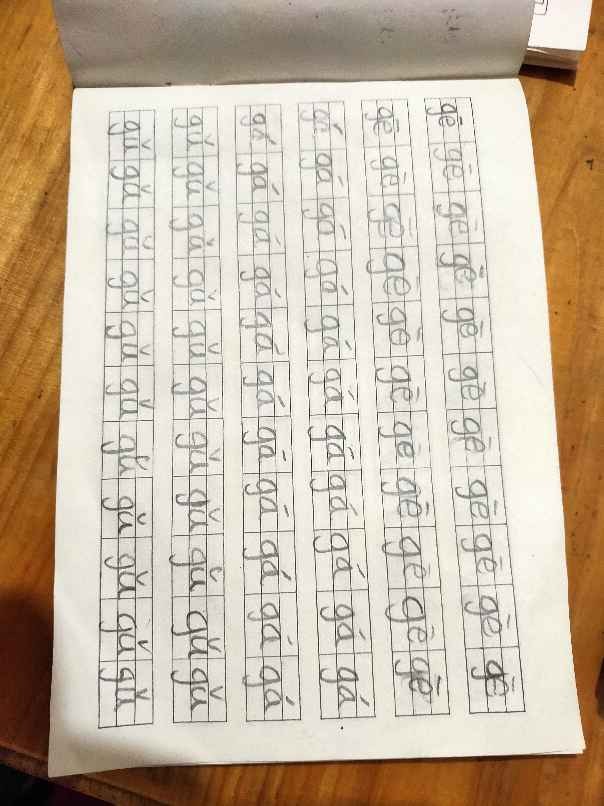 gē gē gē gē gē gē gē gē gē gē gē
gē gē gē gē gē gē gē gē gē gē gē
gá gá gá gá gá gá gá gá gá gá gá
gá gá gá gá gá gá gá gá gá gá gá
gǔ gǔ gǔ gǔ gǔ gǔ gǔ gǔ gǔ gǔ gǔ
gǔ gǔ gǔ gǔ gǔ gǔ gǔ gǔ gǔ gǔ gǔ